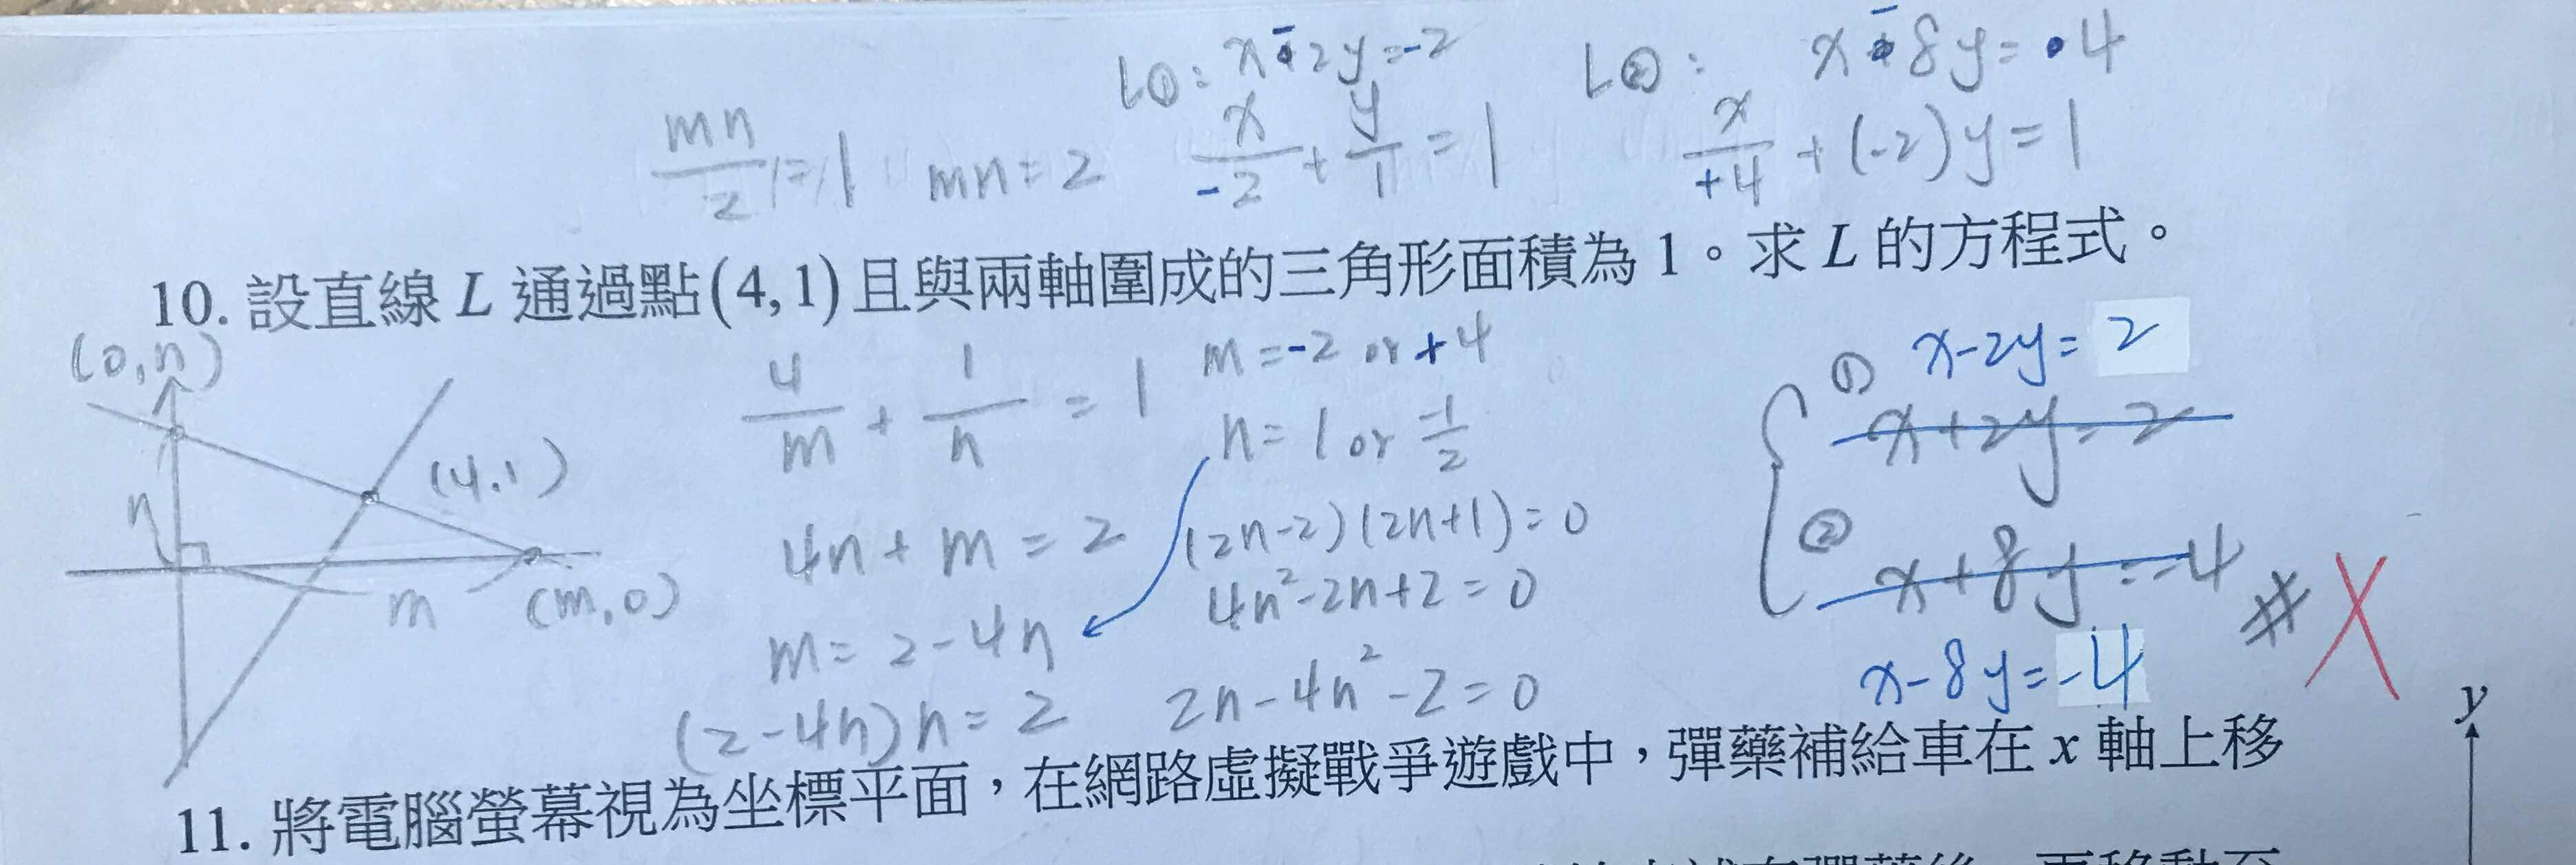 L①: x-2y=-2
L②: x-8y=4
mn/2=1 mn=2 x/-2+y/1=1
x/+4+(-2)y=1
10. 設直線 L 通過點(4,1)且與兩軸圍成的三角形面積為 1。求 L 的方程式。
(0,n)
n
(4.1)
m
(m,0)
4/m+1/n=1
4n+m=2
m=2-4n
(2-4n)n=2
m=-2 or +4
n=1 or -1/2
(2n-2)(2n+1)=0
4n²-2n+2=0
2n-4n²-2=0
① x-2y=2
x+2y=2
② x+8y=-4 #
x-8y=-4
y
11. 將電腦螢幕視為坐標平面，在網路虛擬戰爭遊戲中，彈藥補給車在 x 軸上移